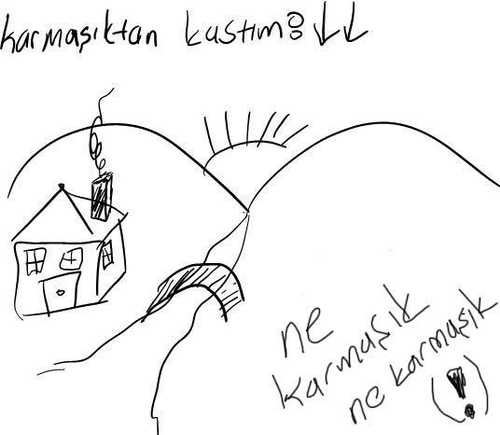 karmaşıktan kastım: ↓↓
ne
karmaşık
ne karmaşık
(!)